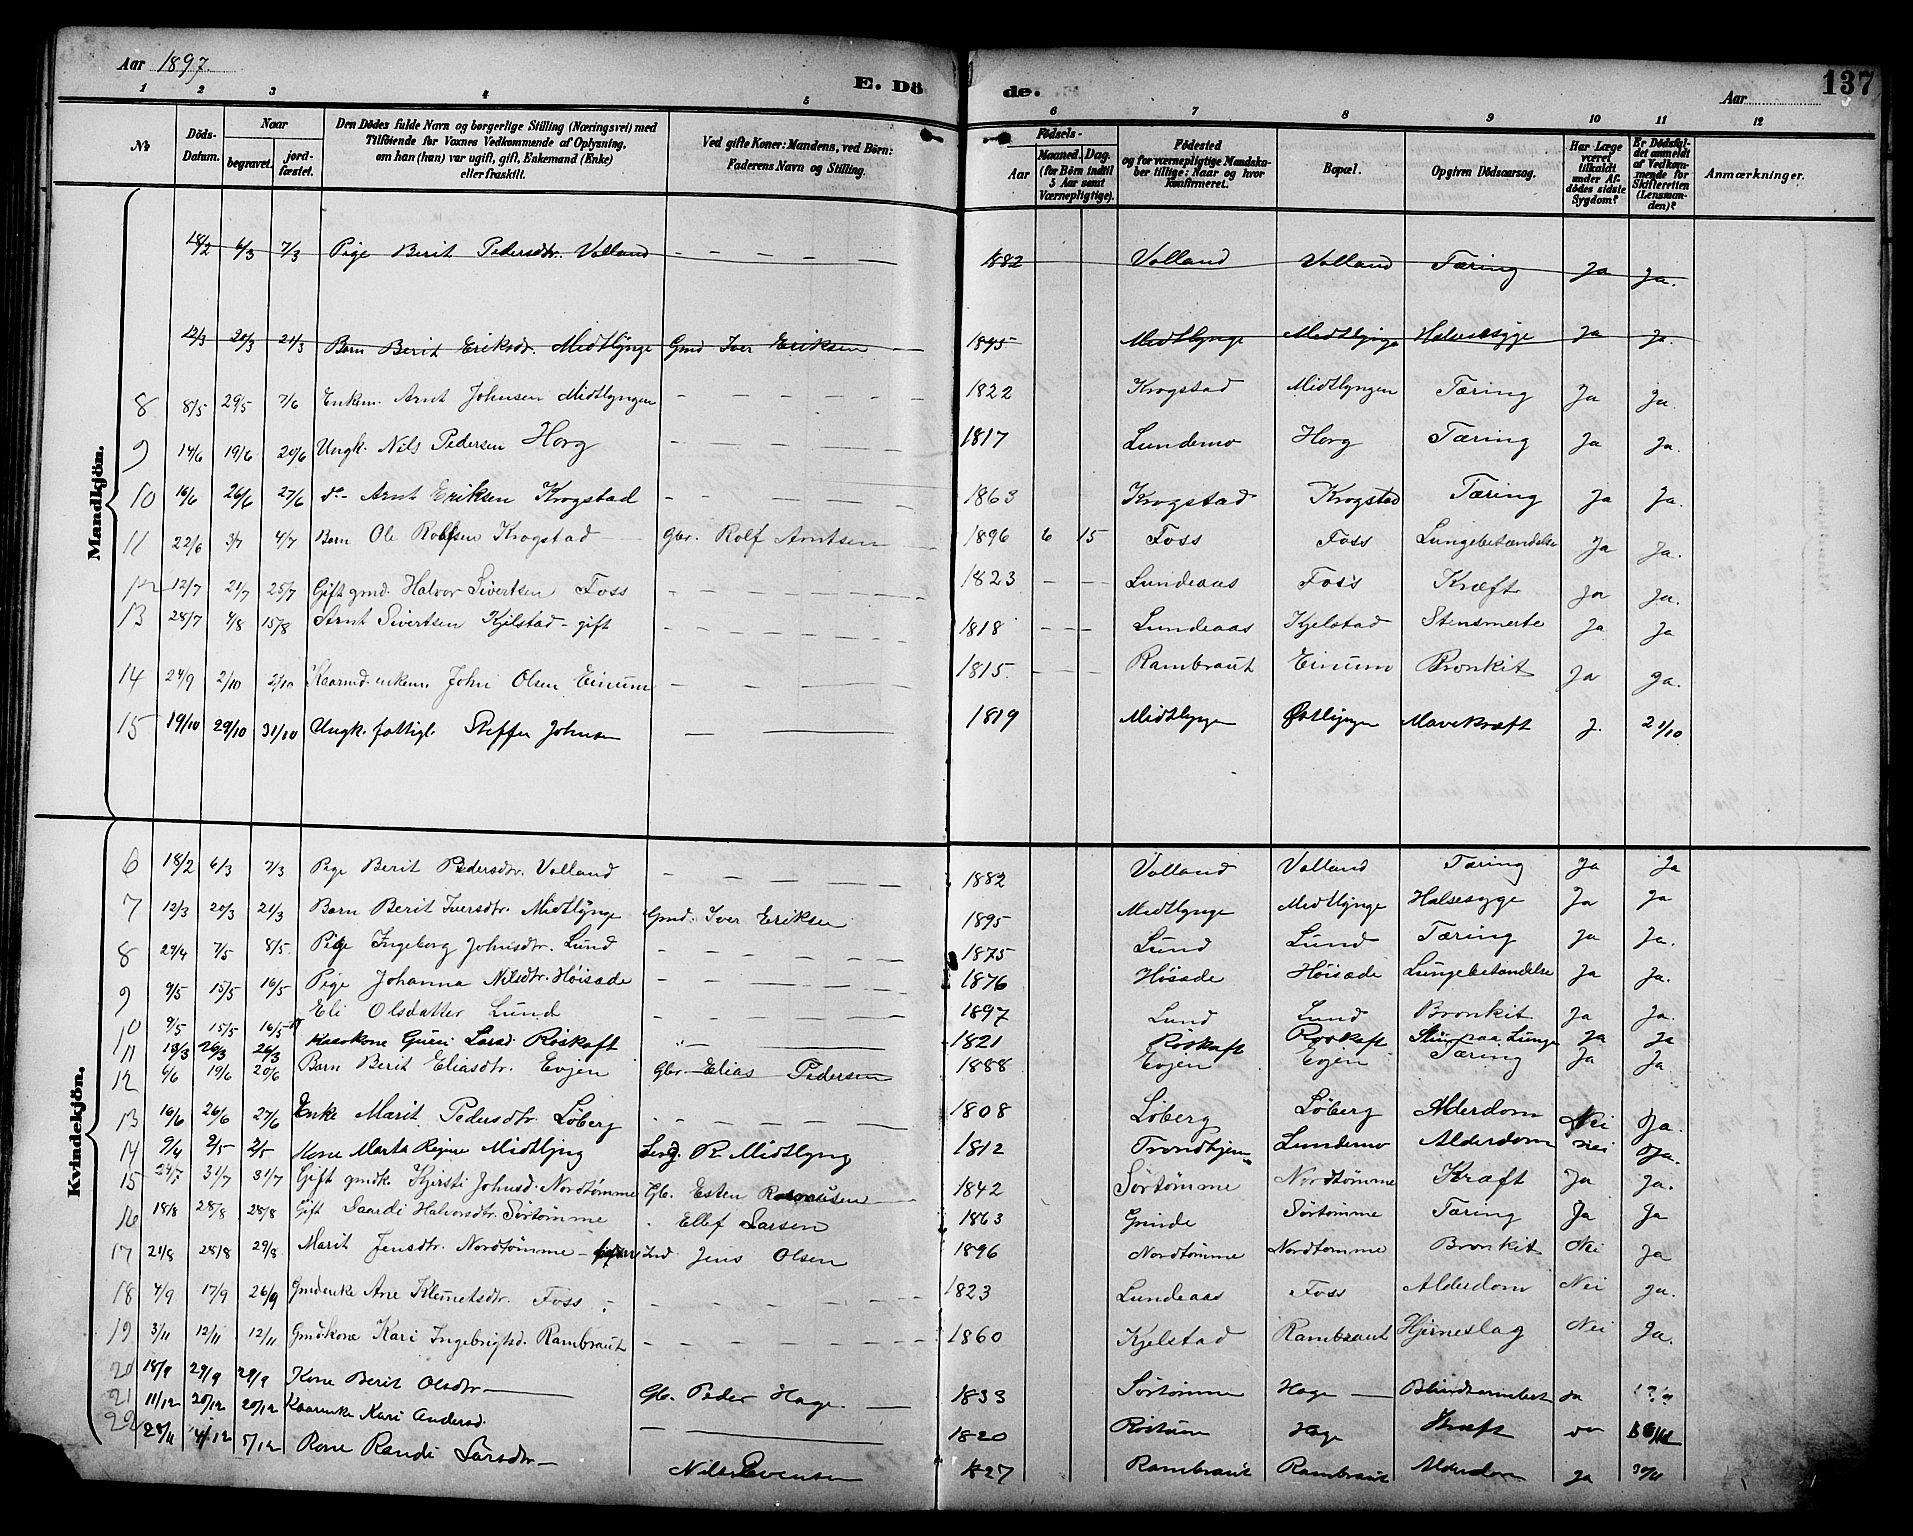 Aar 1897.
E. Dö de.
137
Aar
1 2 3 4 5 6 7 8 9 10 11 12
No
Döds-Datum.
Naar
begravet.
jord-fæstet.
Den Dödes fulde Navn og borgerlige Stilling (Næringsvei) med
Tilföiende for Voxnes Vedkommende af Oplysning,
om han (hun) var ugift, gift, Enkemand (Enke)
eller fraskilt.
Ved gifte Koner: Mandens, ved Börn:
Faderens Navn og Stilling.
Födsels-
Aar
Maaned. Dag.
(for Börn indtil
5 Aar samt
Værnepligtige).
Födested
og for værnepligtige Mandska-
ber tillige: Naar og hvor
konfirmeret.
Bopæl.
Opgiven Dödsaarsag.
Har Læge
været
tilkaldt
under Af-
dödes sidste
Sygdom?
Er Dödsfal-
det anmeldt
af Vedkom-
mende for
Skifteretten
(Lensman-
den)?
Anmærkninger.
Mandkjön.
18/2 6/3 7/3 Pige Berit Pedersdtr. Volland 1882 Volland Volland Tæring Ja Ja.
12/3 20/3 21/3 Barn Berit Eriksdtr. Midtlynge Gmd Iver Eriksen 1895 Midtlynge Midtlynge Halsesyge Ja Ja.
8 8/5 29/5 7/6 Enkem. Arnt Johnsen Midtlyngen 1822 Krogstad Midtlyngen Tæring Ja Ja.
9 14/6 19/6 20/6 Ungk. Nils Pedersen Horg 1817 Lundemo Horg Tæring Ja Ja.
10 16/6 26/6 27/6 do- Arnt Eriksen Krogstad 1863 Krogstad Krogstad Tæring Ja Ja.
11 22/6 3/7 4/7 Barn Ole Rolfsen Krogstad Gbr. Rolf Arntsen 1896 6 15 Foss Foss Lungebetændelse Ja Ja.
12 12/7 21/7 25/7 Gift gmd. Halvor Sivertsen Foss 1823 Lundeaas Foss Kræft Ja Ja.
13 28/7 4/8 15/8 Arnt Sivertsen Kjelstad - gift 1818 Lundeaas Kjelstad Stensmerte Ja Ja
14 24/9 2/10 2/10 Kaarmd. enkem John Olsen Einum 1815. Rambraut Einum Bronkit Ja Ja.
15 19/10 29/10 31/10 Ungk. fattigl. Steffen Johnsen 1819 Midtlyngen Østlyngen Mavekræft J. 21/10
Kvindekjön.
6 18/2 6/3 7/3 Pige Berit Pedersdtr. Volland 1882 Volland Volland Tæring Ja Ja
7 12/3 20/3 21/3 Barn Berit Iversdtr. Midtlynge Gmd. Iver Eriksen 1895 Midtlynge Midtlynge Halsesyge Ja Ja
8 29/4 7/5 8/5 Pige Ingeborg Johnsdtr. Lund 1875 Lund Lund Tæring Ja Ja.
9 9/5 15/5 16/5 Pige Johanna Nilsdtr. Høisade 1876 Høsade Høisade Lungebetændelse Ja Ja.
10 9/5 15/5 16/5 Eli Olsdatter Lund 1897 Lund Lund Bronkit Ja Ja.
11 13/3 26/3 26/3 Kaarkone Guri Larsd. Røskaft 1821 Røskaft Røskaft paa Lunge Ja Ja
12 6/6 19/6 20/6 Barn Berit Eliasdtr. Evjen Gbr. Elias Pedersen 1888 Evjen Evjen Tæring Ja Ja
13 16/6 26/6 27/6 Enke Marit Pedersdtr Løberg 1808 Løberg Løberg Alderdom Nei Ja.
14 9/4 2/5 2/5 Kone Marta Regine Midtlyng R. Midtlyng 1812 Trondhjem Lundemo Alderdom nei Ja.
15 31/7 31/7 Gift gmdk. Kjersti Johnsd. Nordtømme Gb. Esten Rasmusen 1842 Sørtømme Nordtømme Kræft Ja Ja.
16 18/8 28/8 28/8 Gift Saardi Halvorsdtr. Sørtømme Ellef Larsen 1863 Grinde Sørtømme Tæring Ja Ja
17 21/8 28/8 29/8 Marit Jensdtr. Nordtømme Ind Jens Olsen 1896 Nordtømme Nordtømme Bronkit Nei Ja
18 4/9 17/9 26/9 Gmdenke Ane Klemetsdtr. Foss 1823 Lundeaas Foss Alderdom Nei Ja.
19 3/11 12/11 12/11 Gmdkone Kari Ingebrigtsd. Rambraut 1860 Kjelstad Rambraut Hjerneslag Nei Ja.
20 18/9 29/9 29/9 Kone Berit Olsdtr Gb. Peder Hage 1833 Sørtømme Hage Ja
21 11/12 20/12 20/12 Kaarenke Kari Andersd. 1820 Røstum Hage Kræft
22 4/12 5/12 Kone Randi Larsdtr Nils Evensen 1827 Rambraut Rambraut Alderdom Ja 30/11